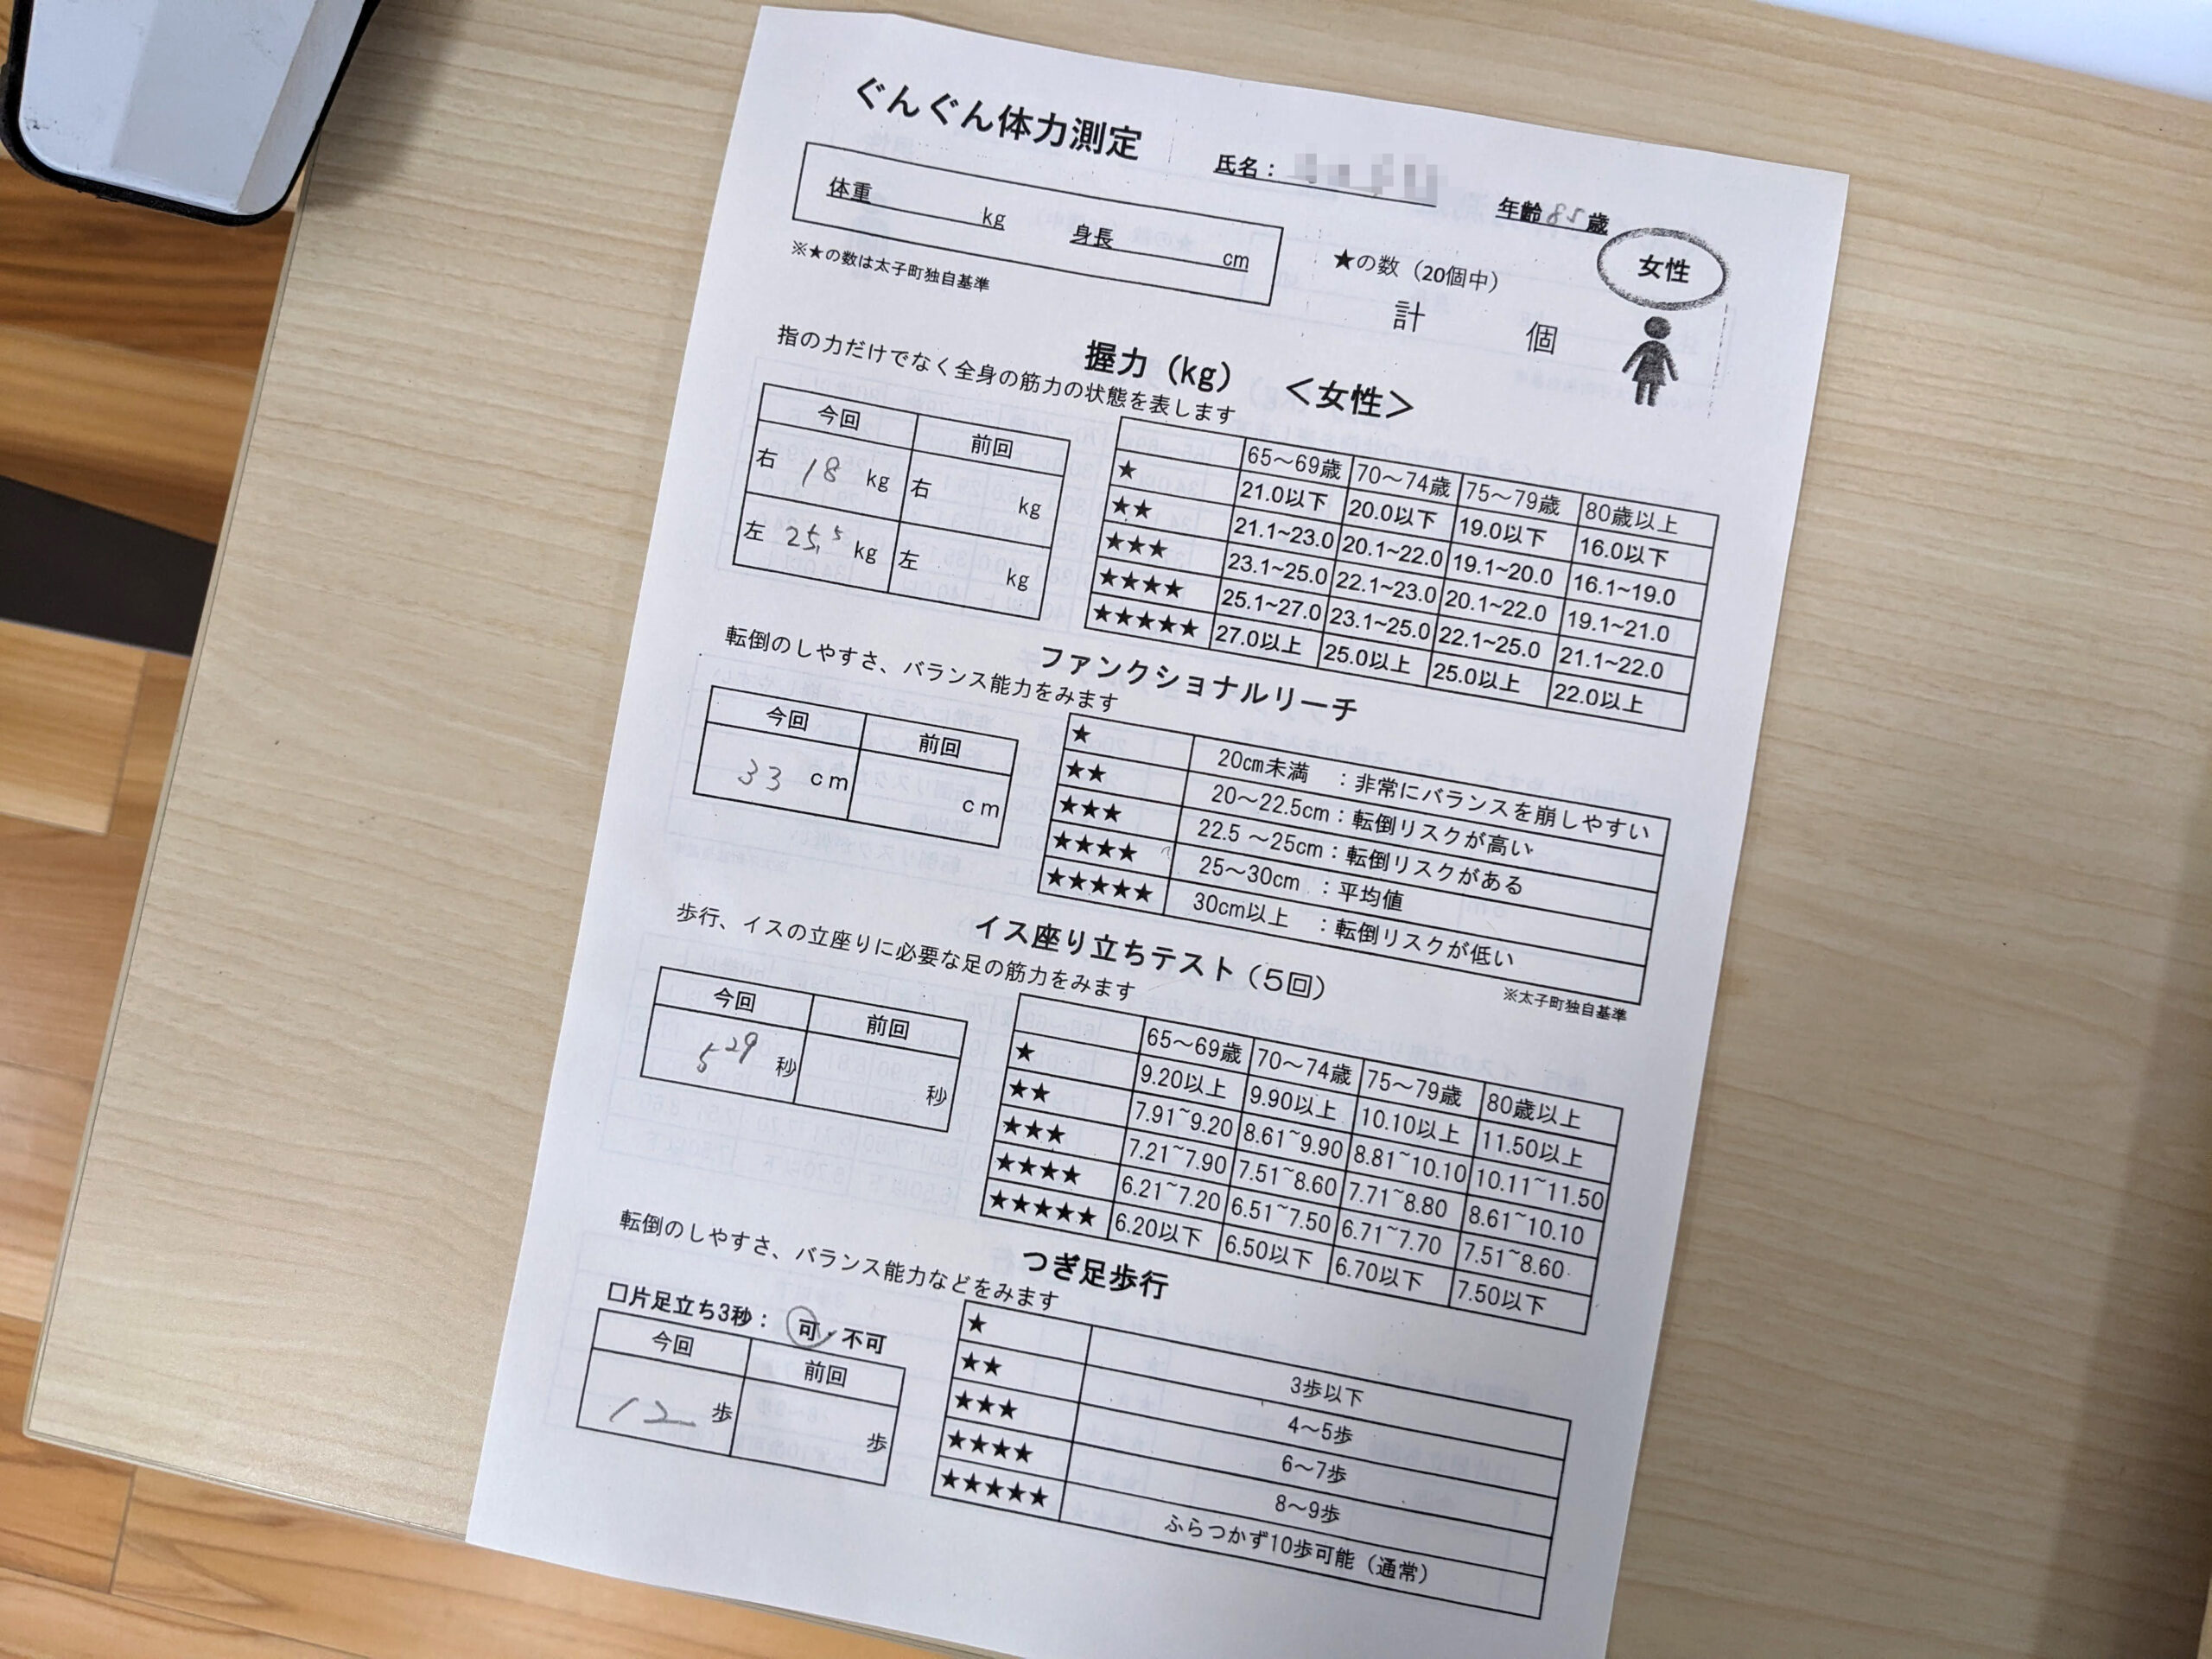 ぐんぐん体力測定
氏名：
年齢 歳
体重 kg 身長 cm
※★の数は太子町独自基準
★の数（20個中）
計 個
女性
握力（kg） ＜女性＞
指の力だけでなく全身の筋力の状態を表します
今回 前回
右 18 kg 右 kg
左 25.5 kg 左 kg
65～69歳 70～74歳 75～79歳 80歳以上
★ 21.0以下 20.0以下 19.0以下 16.0以下
★★ 21.1~23.0 20.1~22.0 19.1~20.0 16.1~19.0
★★★ 23.1~25.0 22.1~23.0 20.1~22.0 19.1~21.0
★★★★ 25.1~27.0 23.1~25.0 22.1~25.0 21.1~22.0
★★★★★ 27.0以上 25.0以上 25.0以上 22.0以上
ファンクショナルリーチ
転倒のしやすさ、バランス能力をみます
今回 前回
33 cm cm
★ 20cm未満 ：非常にバランスを崩しやすい
★★ 20～22.5cm：転倒リスクが高い
★★★ 22.5 ～25cm：転倒リスクがある
★★★★ 25～30cm ：平均値
★★★★★ 30cm以上 ：転倒リスクが低い
※太子町独自基準
イス座り立ちテスト（5回）
歩行、イスの立座りに必要な足の筋力をみます
今回 前回
5 29 秒 秒
65～69歳 70～74歳 75～79歳 80歳以上
★ 9.20以上 9.90以上 10.10以上 11.50以上
★★ 7.91~9.20 8.61~9.90 8.81~10.10 10.11~11.50
★★★ 7.21~7.90 7.51~8.60 7.71~8.80 8.61~10.10
★★★★ 6.21~7.20 6.51~7.50 6.71~7.70 7.51~8.60
★★★★★ 6.20以下 6.50以下 6.70以下 7.50以下
つぎ足歩行
転倒のしやすさ、バランス能力などをみます
□片足立ち3秒： 可・不可
今回 前回
12 歩 歩
★ 3歩以下
★★ 4～5歩
★★★ 6～7歩
★★★★ 8～9歩
★★★★★ ふらつかず10歩可能（通常）